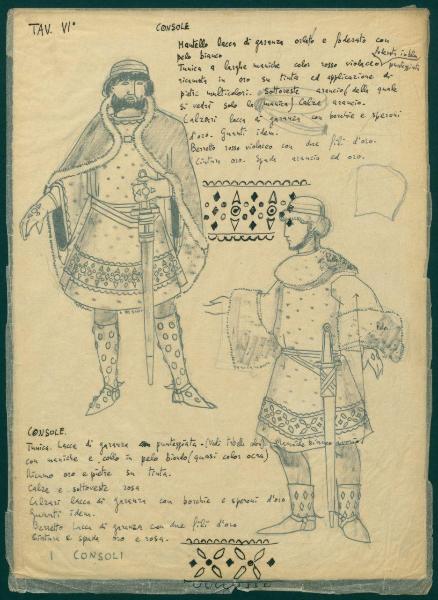 TAV. VIª
CONSOLE
Mantello lacca di garanza orlato e foderato con
pelo bianco
Tunica a larghe maniche color rosso violaceo punteggiata
ricamata in oro su tinta ed applicazione di
pietre multicolori. Sottoveste arancio (della quale
si vedrà solo la manica) Calze arancio.
Calzari lacca di garanza con borchie e speroni
d'oro. Guanti idem.
Berretto rosso violaceo con due fili d'oro.
Cintura oro. Spada arancio ed oro.
CONSOLE.
Tunica. Lacca di garanza punteggiata. (Vedi
con maniche e collo in pelo biondo (quasi color ocra)
Ricamo oro e pietre su tinta.
Calze e sottoveste rosa
Calzari lacca di garanza con borchie e speroni d'oro
Guanti idem.
Berretto lacca di garanza con due fili d'oro
Cintura e spada oro e rosa.
I CONSOLI